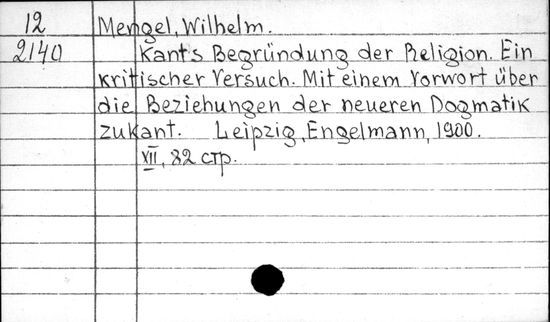 12 Mengel, Wilhelm.
2140 Kants Begründung der Religion. Ein
kritischer Versuch. Mit einem Vorwort über
die Beziehungen der neueren Dogmatik
zu Kant. Leipzig, Engelmann, 1900.
XII, 82 стр.